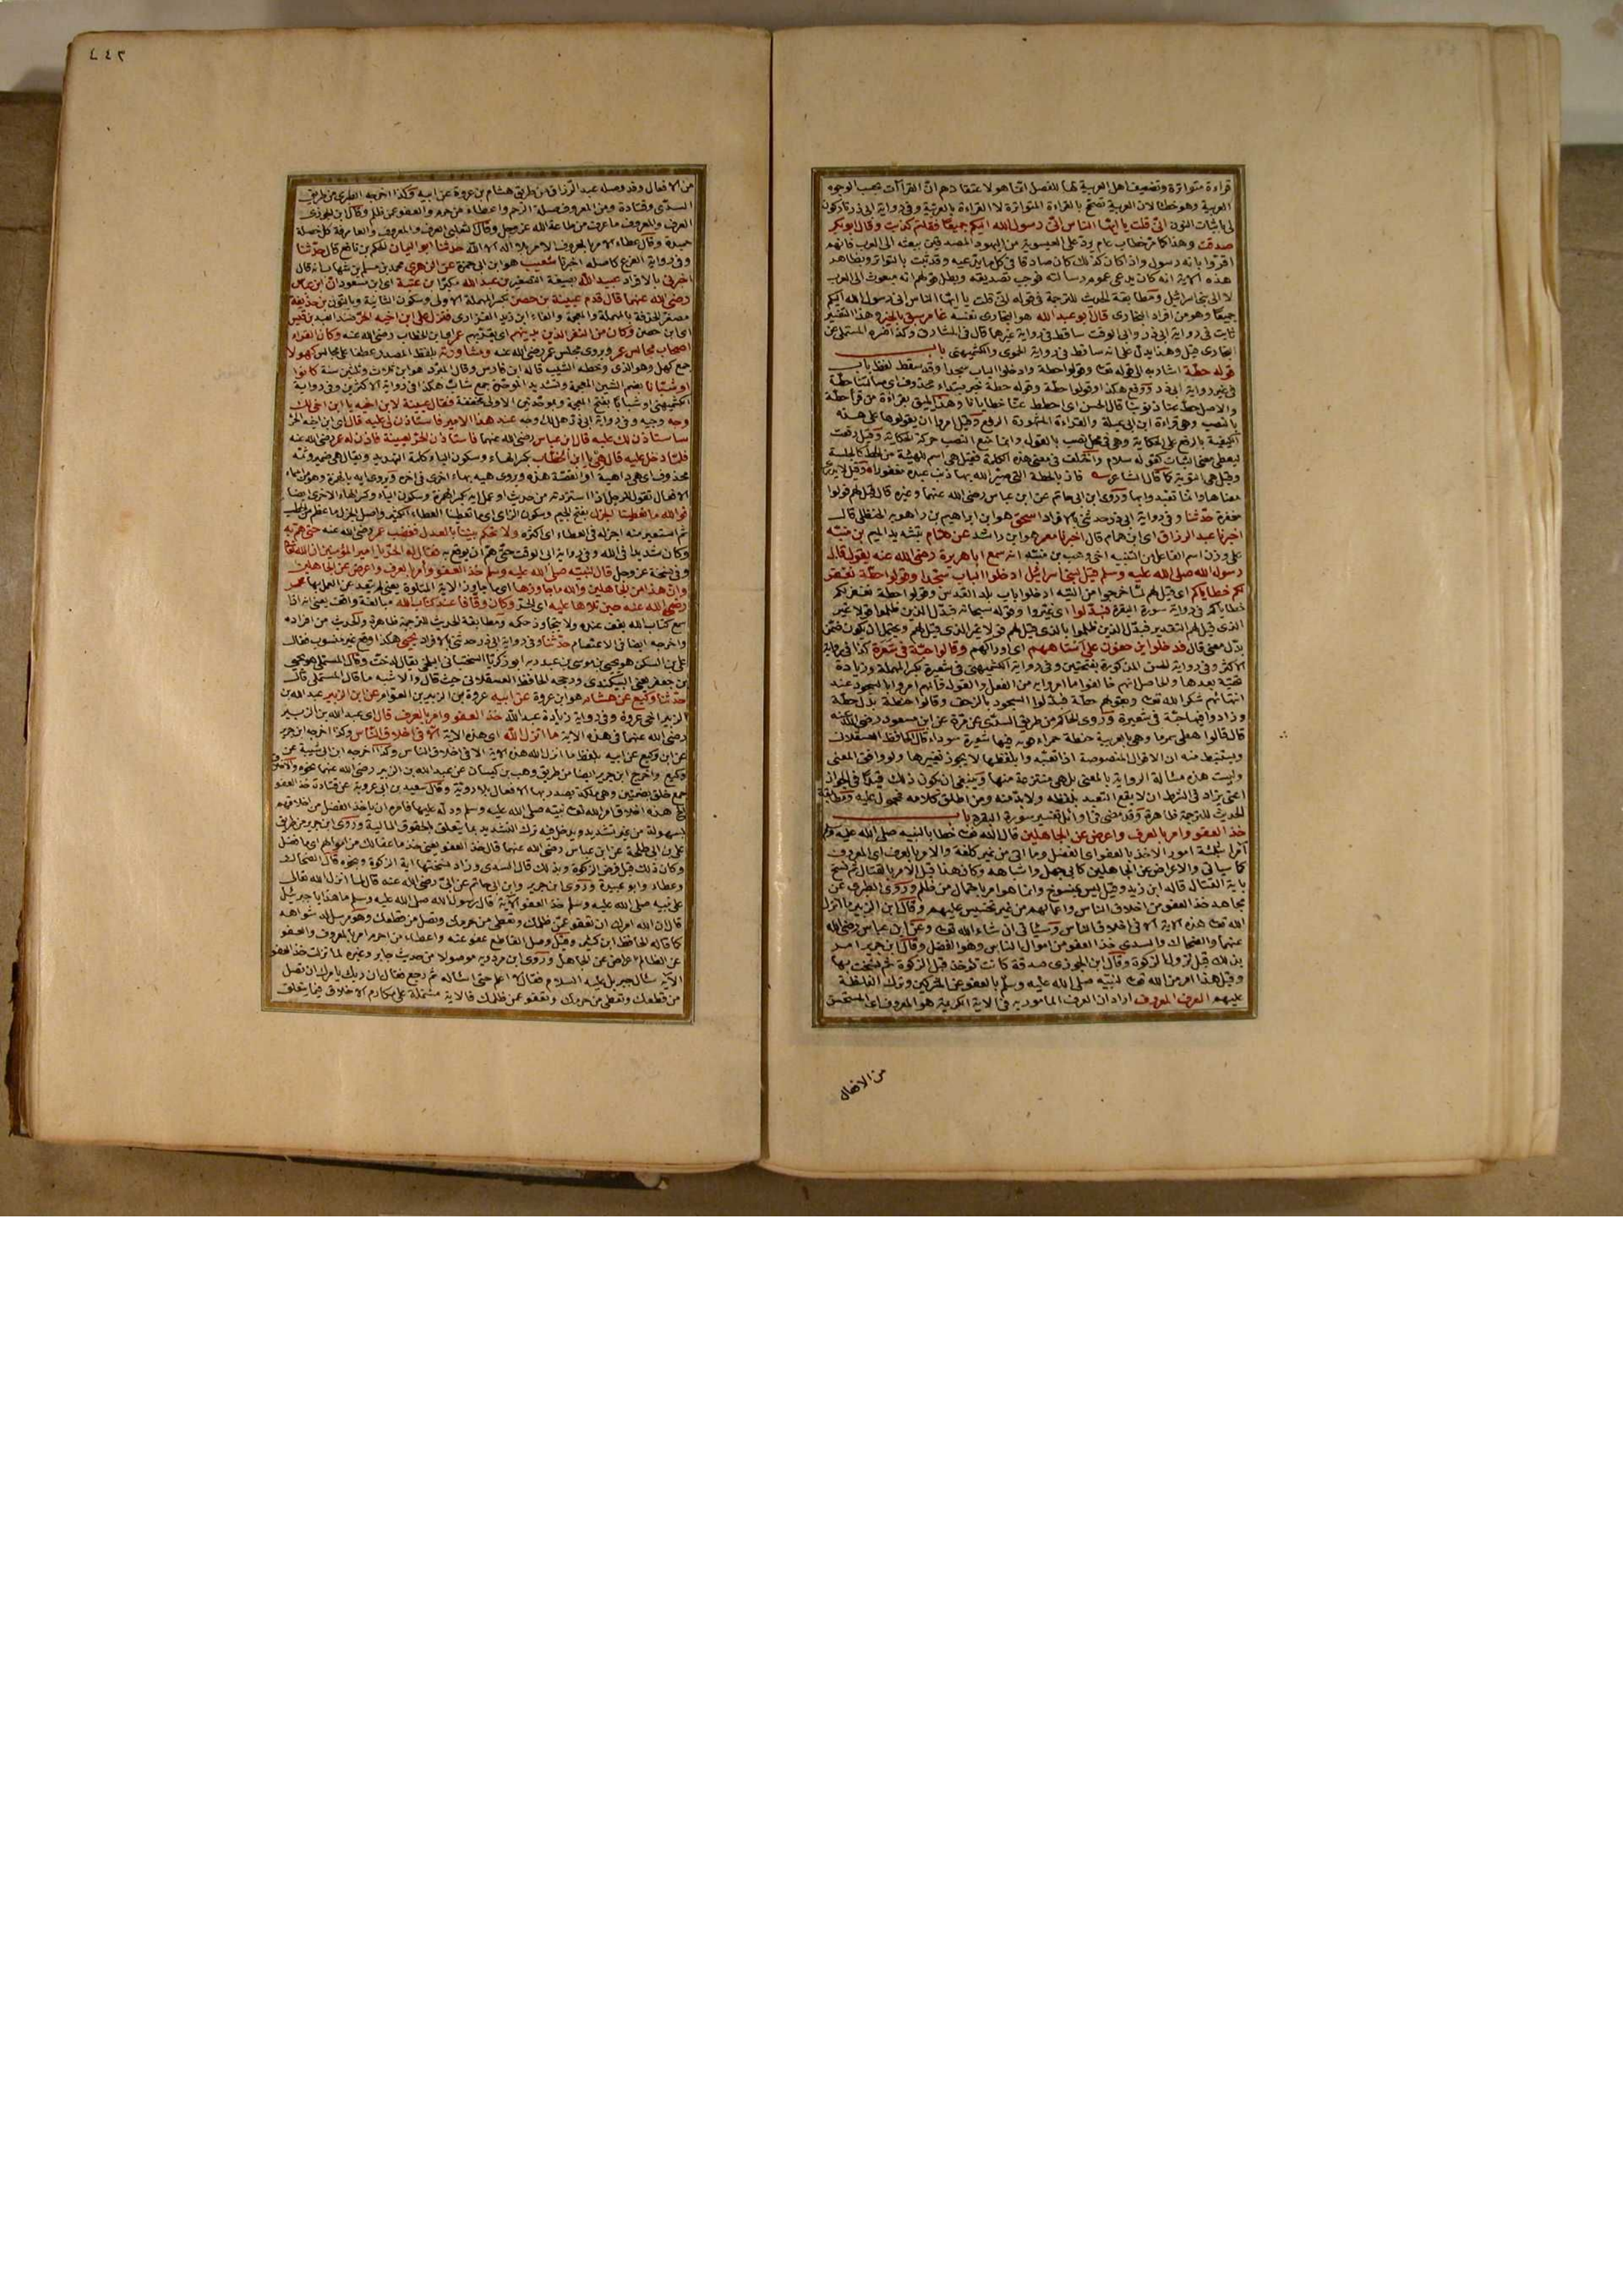 قراءة متواترة وتضعيف اهل العربية لها للفصل انما هو لاعتقادهم ان القراآت بحسب الوجوه
العربية وهو خطأ لان العربية تصحح بالقراءة المتواترة لا القراءة بالعربية وفى رواية ابى ذر تاركون
لى باثبات النون انى قلت يا ايها الناس انى رسول الله اليكم جميعا فقلتم كذبت وقال ابو بكر
صدقت وهذا كما ترى خطاب عام يرد على العيسوية من اليهود المصدقين ببعثه الى العرب فانهم
اقروا بانه رسول واذا كان كذلك كان صادقا فى كل ما يدعيه وقد ثبت بالتواتر وبظاهر
هذه الآية انه كان يدعى عموم رسالته فوجب تصديقه وبطل قولهم انه مبعوث الى العرب
لا الى بنى اسرائيل ومطابقة الحديث للترجمة فى قوله انى قلت يا ايها الناس انى رسول الله اليكم
جميعا وهو من افراد البخارى قال ابو عبد الله هو البخارى نفسه غامر سبق بالخير وهذا التفسير
ثابت فى رواية ابى ذر وابى الوقت ساقط فى رواية غيرهما قال فى المشارق وكذا فسره المستملى عن
البخارى قيل وهذا يدل على انه ساقط فى رواية الحموى والكشميهنى باب
قوله حطة اشار به الى قوله تعا وقولوا حطة وادخلوا الباب سجدا وقد سقط لفظ باب
فى غير رواية ابى ذر ووقع هكذا وقولوا حطة وقوله حطة خبر مبتداء محذوف اى مسألتنا حطة
والاصل حط عنا ذنوبنا قال الحسن اى احطط عنا خطايانا وهذا يليق بقراءة من قرأ حطة
بالنصب وهى قراءة ابن ابى عبلة والقراءة المشهورة الرفع وقيل امروا ان يقولوها على هذه
الكيفية بالرفع على الحكاية وهى فى محل نصب بالقول وانما منع النصب حركة الحكاية وقيل رفعت
ليعطى معنى الثبات كقوله سلام واختلف فى معنى هذه الكلمة فقيل هى اسم للهيئة من الحط كالجلسة
وقيل هى التوبة كما قال الشاعر فاز بالحطة التى صير الله بها ذنب عبده مغفورا وقيل لا يدرى
معناها وانما تعبدوا بها وروى ابن ابى حاتم عن ابن عباس رضى الله عنهما وغيره قال قيل لهم قولوا
مغفرة حدثنا وفى رواية ابى ذر حدثنى بالافراد اسحق هو ابن ابراهيم بن راهويه الحنظلى قال
اخبرنا عبد الرزاق اى ابن همام قال اخبرنا معمر هو ابن راشد عن همام بتشديد الميم بن منبه
على وزن اسم الفاعل من التنبيه اخى وهب بن منبه انه سمع ابا هريرة رضى الله عنه يقول قال
رسول الله صلى الله عليه وسلم قيل لبنى اسرائيل ادخلوا الباب سجدا وقولوا حطة نغفر
لكم خطاياكم اى قيل لهم لما خرجوا من التيه ادخلوا باب بلد القدس وقولوا حطة نغفر لكم
خطاياكم فى رواية سورة البقرة فبدلوا اى غيروا وقوله سبحانه فبدل الذين ظلموا قولا غير
الذى قيل لهم التقدير فبدل الذين ظلموا بالذى قيل لهم قولا غير الذى قيل لهم ويحتمل ان يكون ضمن
بدل معنى قال فدخلوا يزحفون على استاههم اى اوراكهم وقالوا حبة فى شعرة كذا فى رواية
الاكثر وفى رواية للحسن المذكورة بفتحتين وفى رواية الكشميهنى فى شعيرة بكسر المهملة وزيادة
تحتية بعدها والحاصل انهم خالفوا ما امروا به من الفعل والقول فانهم امروا بالسجود عند
انتهائهم شكرا لله تعا وبقولهم حطة فبدلوا السجود بالزحف وقالوا حنطة بدل حطة
وزادوا فيها حبة فى شعيرة وروى الحاكم من طريق السدى عن مرة عن ابن مسعود رضى الله عنه
قال قالوا هطى سمرما وهى بالعربية حنطة حمراء قوية فيها شعرة سوداء قال الحافظ العسقلانى
ويستنبط منه ان الاقوال المنصوصة اذا تعبد وا بلفظها لا يجوز تغييرها ولو وافق المعنى
وليست هذه مسألة الرواية بالمعنى بل هى متفرعة منها وينبغى ان يكون ذلك قيدا فى الجواز
اعنى يزاد فى الشرط ان لا يقع التعبد بلفظه ولا بد منه ومن اطلق كلامه محمول عليه ومطابقة
الحديث للترجمة ظاهرة وقد مضى فى اوائل تفسير سورة البقرة باب
خذ العفو وامر بالعرف واعرض عن الجاهلين قال الله تعا خطابا لنبيه صلى الله عليه وسلم
آمرا بثلثة امور الاخذ بالعفو اى الفضل وما اتى من غير كلفة والامر بالعرف اى المعروف
كما سيأتى والاعراض عن الجاهلين كابى جهل واشباهه وكان هذا قبل الامر بالقتال ثم نسخ
باية القتال قاله ابن زيد وقيل ليس بمنسوخ وانما هو امر باحتمال من ظلم وروى الطبرى عن
مجاهد خذ العفو من اخلاق الناس واعمالهم من غير تحسيس عليهم وقال ابن الزبير ما انزل
الله تعا هذه الآية الا فى اخلاق الناس وسيأتى ان شاء الله تعا وعن ابن عباس رضى الله
عنهما والضحاك والسدى خذ العفو من اموال الناس وهو الفضل وقال ابن جرير امر
بذلك قبل نزول الزكوة وقال ابن الجوزى صدقة كانت تؤخذ قبل الزكوة ثم نسخت بها
وقيل هذا امر من الله تعا لنبيه صلى الله عليه وسلم بالعفو عن المشركين وترك الغلظة
عليهم العرف المعروف اراد ان العرف المأمور به فى الاية الكريمة هو المعروف اى المستحسن
من الافعال
من الافعال وقد وصله عبد الرزاق من طريق هشام بن عروة عن ابيه وكذا اخرجه الطبرى من طريق
السدى وقتادة ومن المعروف صلة الرحم واعطاء من حرم والعفو عن ظلم وقال ابن الجوزى
العرف والمعروف ما عرف من طاعة الله عز وجل وقال الثعلبى العرف والمعروف والعارفة كل خصلة
حميدة وقال عطاء الامر بالعرف الامر بلا اله الا الله حدثنا ابو اليمان الحكم بن نافع قال حدثنا
وفى رواية الفرع كاصله اخبرنا شعيب هو ابن ابى حمزة عن الزهرى محمد بن مسلم بن شهاب انه قال
اخبرنى بالافراد عبيد الله بصيغة التصغير بن عبد الله مكبرا بن عتبة اى ابن مسعود ان ابن عباس
رضى الله عنهما قال قدم عيينة بن حصن بكسر المهملة الاولى وسكون الثانية وبالنون بن حذيفة
مصغر الحذفة بالمهملة والمعجمة والفاء ابن زيد الفزارى فنزل على ابن اخيه الحر ضد العبد بن قيس
اى ابن حصن وكان من النفر الذين يدنيهم اى يقربهم عمر بن الخطاب رضى الله عنه وكان القراء
اصحاب مجالس عمر ويروى مجلس عمر رضى الله عنه ومشاورته بلفظ المصدر عطفا على مجالس كهولا
جمع كهل وهو الذى وخطه الشيب قاله ابن فارس وقال المبرد هو ابن ثلاث وثلثين سنة كانوا
او شبانا بضم الشين المعجمة وتشديد الموحدة جمع شاب هكذا فى رواية الاكثرين وفى رواية
الكشميهنى او شبابا بفتح المعجمة وبموحدتين الاولى مخففة فقال عيينة لابن اخيه يا ابن اخى لك
وجه وجيه وفى رواية ابى ذر هل لك وجه عند هذا الامير فاستأذن لى عليه قال اى ابن اخيه الحر
سأستأذن لك عليه قال ابن عباس رضى الله عنهما فاستأذن الحر لعيينة فاذن له عمر رضى الله عنه
فلما دخل عليه قال هى يا ابن الخطاب بكسر الهاء وسكون الياء وكلمة التهديد ويقال هى ضمير وثمه
محذوف اى هى داهية او القصة هذه وروى هيه بهاء اخرى فى اخره ويروى ايه بالهمزة وهو من اسماء
الافعال تقول للرجل اذا استزدته من حديث او عمل ايه بكسر الهمزة وسكون الياء وكسر الهاء الاخرى ايضا
فوالله ما تعطينا الجزل بفتح الجيم وسكون الزاى اى ما تعطينا العطاء الكثير واصل الجزل ما عظم من الحطب
ثم استعير منه اجزل له فى العطاء اى اكثره ولا تحكم بيننا بالعدل فغضب عمر رضى الله عنه حتى هم به
وكان شديدا فى الله وفى رواية ابى الوقت حتى هم ان يوقع به فقال له الحر يا امير المؤمنين ان الله تعا
وفى نسخة عز وجل قال لنبيه صلى الله عليه وسلم خذ العفو وأمر بالعرف واعرض عن الجاهلين
وان هذا من الجاهلين والله ما جاوزها اى ما جاوز الاية المتلوة يعنى لم يتعد عن العمل بها عمر
رضى الله عنه حين تلاها عليه اى الحر وكان وقافا عند كتاب الله مبالغة واقف يعنى انه اذا
سمع كتاب الله يقف عنده ولا يتجاوز حكمه ومطابقة الحديث للترجمة ظاهرة والحديث من افراده
واخرجه ايضا فى الاعتصام حدثنا وفى رواية ابى ذر حدثنى بالافراد يحيى هكذا وقع غير منسوب فقال
على بن السكن هو يحيى بن موسى بن عبد ربه ابو زكريا السختيانى البلخى يقال له خت وقال المستملى هو يحيى
بن جعفر يعنى البيكندى ورجحه الحافظ العسقلانى حيث قال والاشبه ما قال المستملى قال
حدثنا وكيع عن هشام هو ابن عروة عن ابيه عروة بن الزبير بن العوام عن ابن الزبير عبد الله بن
الزبير اخى عروة وفى رواية زيادة عبد الله خذ العفو وامر بالعرف قال اى عبد الله بن الزبير
رضى الله عنهما فى هذه الاية ما انزل الله اى هذه الاية الا فى اخلاق الناس وكذا اخرجه ابن جرير
عن ابن وكيع عن ابيه بلفظ ما انزل الله هذه الآية الا فى اخلاق الناس وكذا اخرجه ابن ابى شيبة عن
وكيع واخرج ابن جرير ايضا من طريق وهب بن كيسان عن عبد الله بن الزبير رضى الله عنهما نحوه والاخلاق
جمع خلق بضمتين وهى ملكة يصدر بها الافعال بلا روية وقال سعيد بن ابى عروبة عن قتادة خذ العفو
الخ هذه اخلاق امر الله تعا نبيه صلى الله عليه وسلم ودله عليها فامره ان يأخذ الفضل من اخلاقهم
بسهولة من غير تشديد ويدخل فيه ترك التشديد بما يتعلق بالحقوق المالية وروى ابن جرير من طريق
على بن ابى طلحة عن ابن عباس رضى الله عنهما قال خذ العفو يعنى خذ ما عفا لك من اموالهم اى ما فضل
وكان ذلك قبل فرض الزكوة وبذلك قال السدى وزاد فنسختها اية الزكوة وبنحوه قال الضحاك
وعطاء وابو عبيدة وروى ابن جرير وابن ابى حاتم عن ابىّ رضى الله عنه قال لما انزل الله تعالى
على نبيه صلى الله عليه وسلم خذ العفو الآية قال رسول الله صلى الله عليه وسلم ما هذا يا جبرئيل
قال ان الله امرك ان تعفو عمن ظلمك وتعطى من حرمك وتصل من قطعك وهو مرسل له شواهد
كما قاله الحافظ ابن كثير وقيل وصل القاطع عفو عنه واعطاء من احرم امر بالمعروف والعفو
عن الظالم اعراض عن الجاهل وروى ابن مردويه موصولا من حديث جابر وغيره لما نزلت خذ العفو
الآية سأل جبريل عليه السلام فقال لا اعلم حتى اسأله ثم رجع فقال ان ربك يأمرك ان تصل
من قطعك وتعطى من حرمك وتعفو عمن ظلمك فالاية مشتملة على مكارم الاخلاق فيما يتعلق